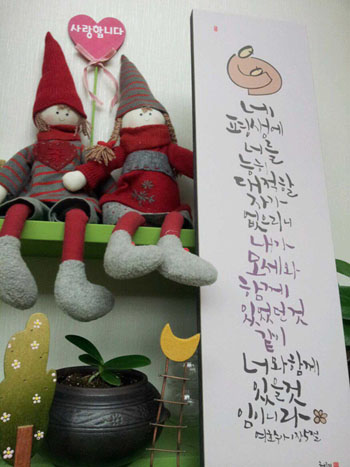 사랑합니다
네
평생에
너를
능히
대적할
자가
없으리니
내가
모세와
함께
있었던 것
같이
너와 함께
있을 것
임이니라
여호수아 1장 5절